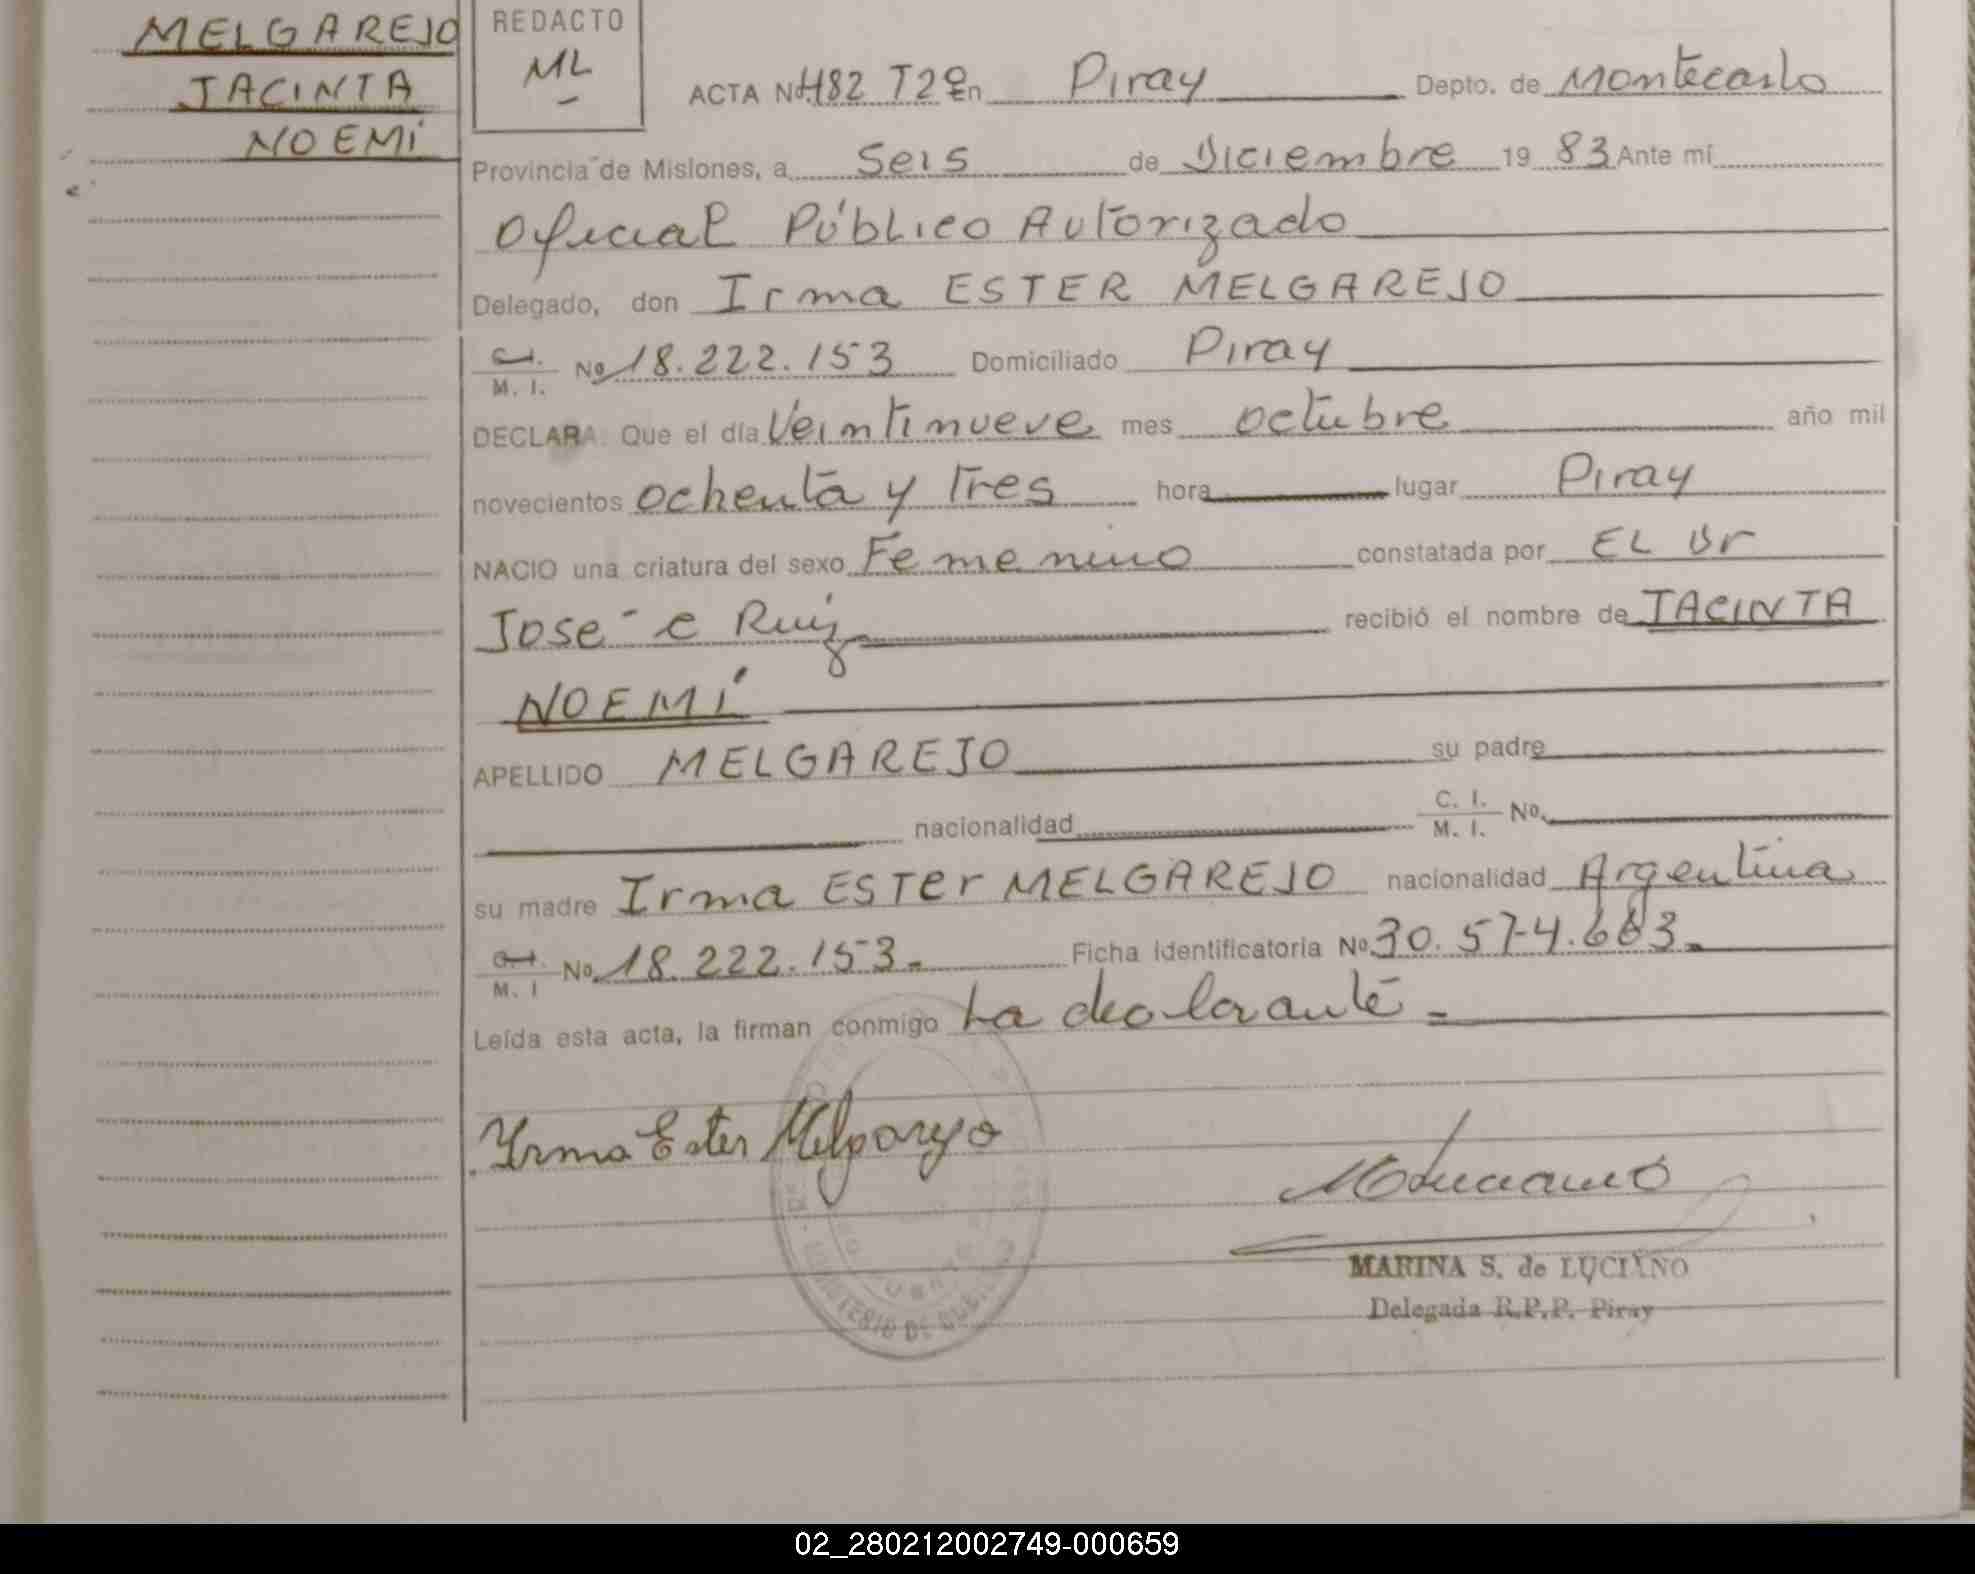 MELGAREJO
JACINTA
NOEMÍ
REDACTO
ML
ACTA Nº 482 T2º En Piray Depto. de Montecarlo
Provincia de Misiones, a Seis de Diciembre 1983 Ante mí
Oficial Público Autorizado
Delegado, don Irma ESTER MELGAREJO
C.I. / M. I. Nº 18.222.153 Domiciliado Piray
DECLARA: Que el día Veintinueve mes octubre año mil
novecientos ochenta y Tres hora lugar Piray
NACIO una criatura del sexo Femenino constatada por EL Dr
José C Ruiz recibió el nombre de JACINTA
NOEMÍ
APELLIDO MELGAREJO su padre
nacionalidad C. I. / M. I. Nº
su madre Irma ESTEr MELGAREJO nacionalidad Argentina
C.I. / M. I Nº 18.222.153.- Ficha identificatoria Nº 30.574.663.-
Leída esta acta, la firman conmigo La declarante.-
Yrma Ester Melgarejo
MARINA S. de LUCIANO
Delegada R.P.P. Piray
MINISTERIO DE GOBIERNO
02_280212002749-000659